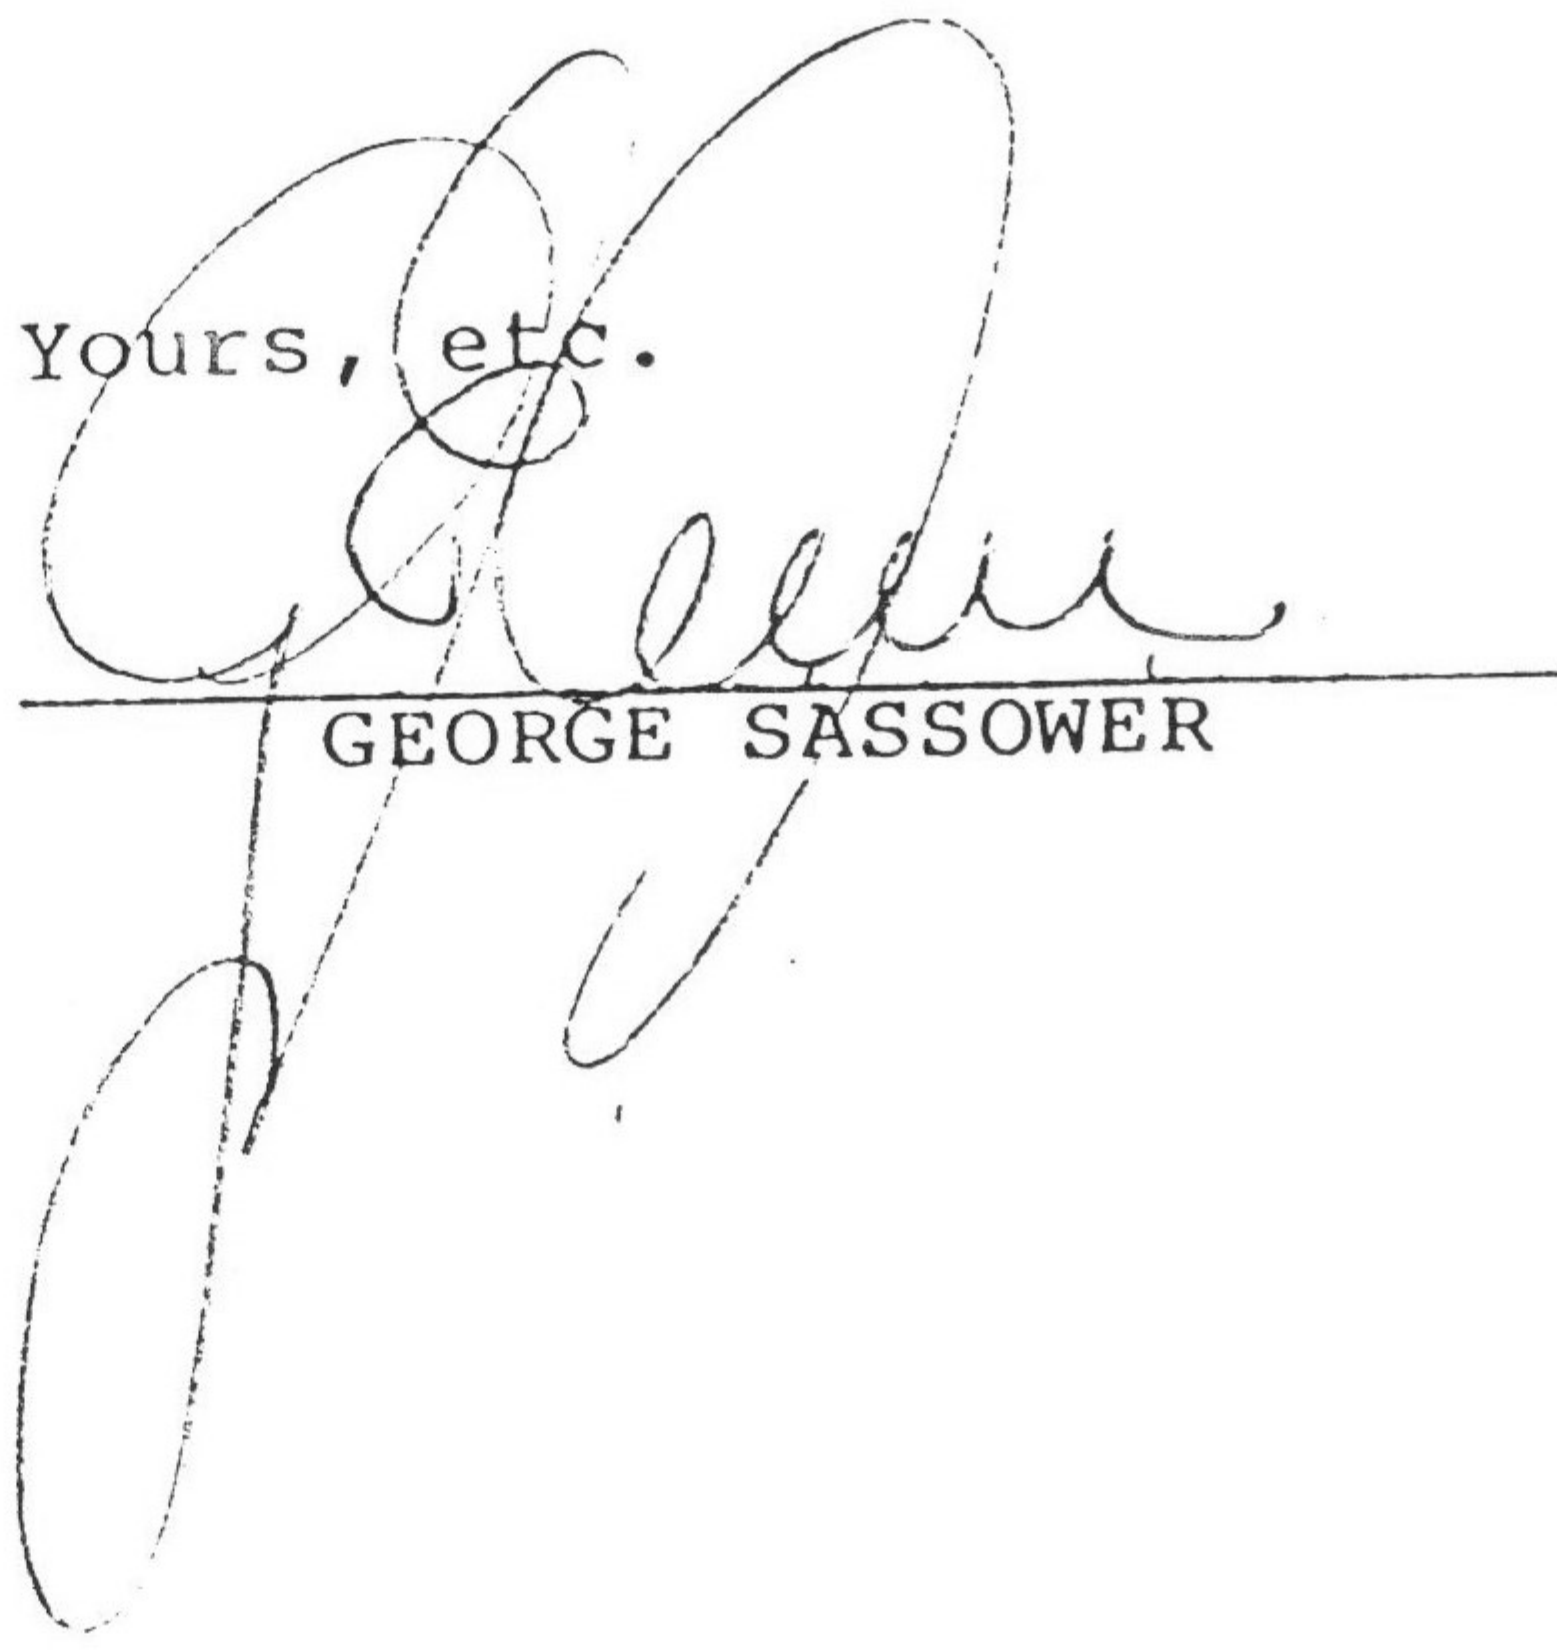 Yours, etc.
GEORGE SASSOWER